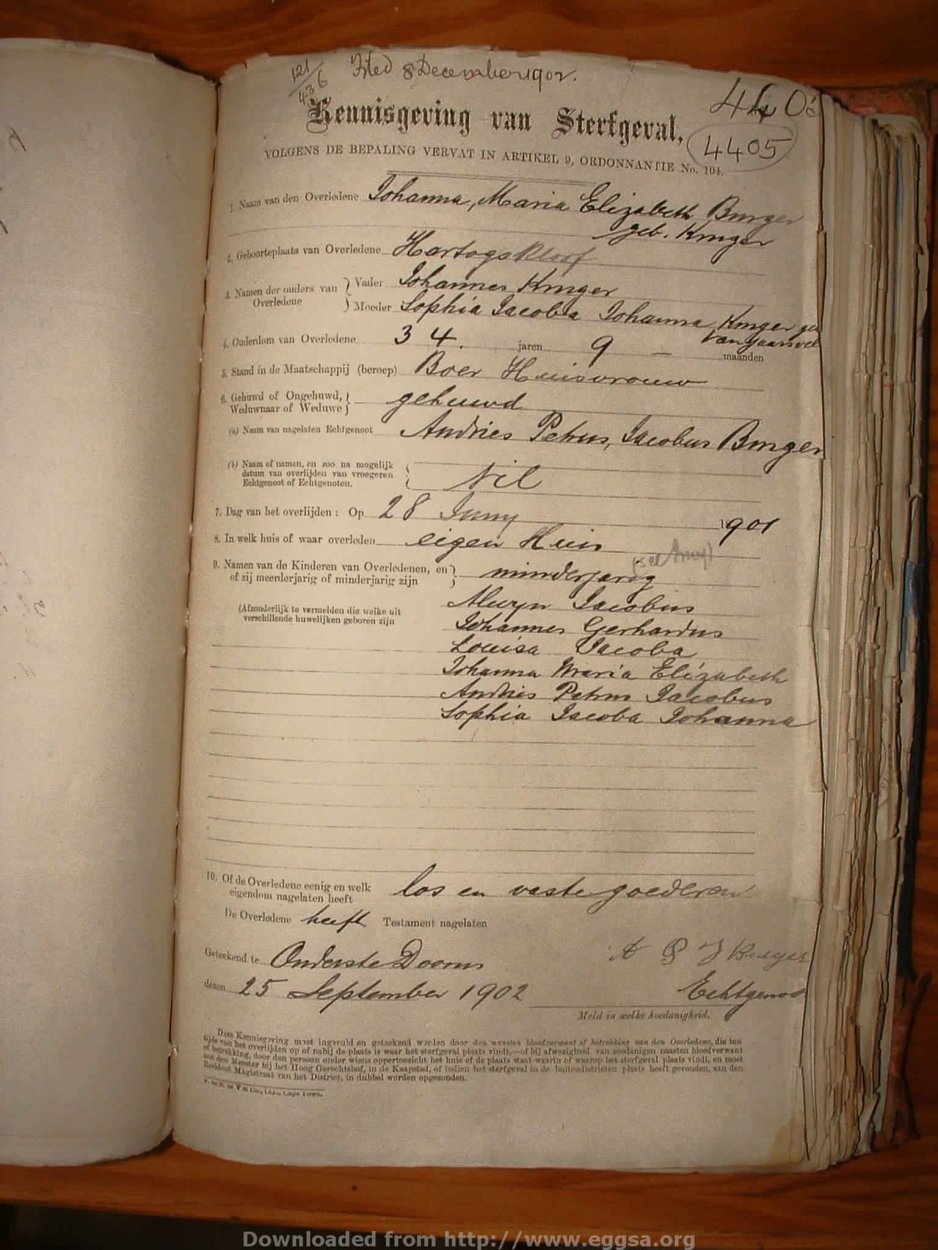 121/436
Filed 8 December 1902.
4405
4405
Kennisgeving van Sterfgeval,
VOLGENS DE BEPALING VERVAT IN ARTIKEL 9, ORDONNANTIE No. 104.
1. Naam van den Overledene Johanna, Maria Elizabeth Burger
geb. Kruger
2. Geboorteplaats van Overledene Hartogskloof
3. Namen der ouders van Overledene } Vader Johannes Kruger
Moeder Sophia Jacoba Johanna Kruger geb
van Jaarsvel
4. Ouderdom van Overledene 34. jaren 9 — maanden
5. Stand in de Maatschappij (beroep) Boer Huisvrouw
6. Gehuwd of Ongehuwd, Weduwnaar of Weduwe } gehuwd
(a) Naam van nagelaten Echtgenoot Andries Petrus, Jacobus Burger
(b) Naam of namen, en zoo na mogelijk
datum van overlijden van vroegeren
Echtgenoot of Echtgenoten. } Nil
7. Dag van het overlijden : Op 28 Juny 1901
8. In welk huis of waar overleden eigen Huis
9. Namen van de Kinderen van Overledenen, en
of zij meerderjarig of minderjarig zijn } minderjarig
(Afzonderlijk te vermelden die welke uit
verschillende huwelijken geboren zijn
Alwyn Jacobus
Johannes Gerhardus
Louisa Jacoba
Johanna Maria Elizabeth
Andries Petrus Jacobus
Sophia Jacoba Johanna
10. Of de Overledene eenig en welk
eigendom nagelaten heeft los en vaste goederen
De Overledene heeft Testament nagelaten
Geteekend te Onderste Doorns A P J Burger
dezen 25 September 1902 Echtgenoot
Meld in welke hoedanigheid.
Deze Kennisgeving moet ingevuld en geteekend worden door den naasten bloedverwant of betrekking van den Overledene, die ten
tijde van het overlijden op of nabij de plaats is waar het sterfgeval plaats vindt,—of bij afwezigheid van zoodanigen naasten bloedverwant
of betrekking, door den persoon onder wiens oppertoezicht het huis of de plaats staat waarin of waarop het sterfgeval plaats vindt, en moet
aan den Meester bij het Hoog Gerechtshof, in de Kaapstad, of indien het sterfgeval in de buitendistricten plaats heeft gevonden, aan den
Resident Magistraat van het District, in dubbel worden opgezonden.
Downloaded from http://www.eggsa.org